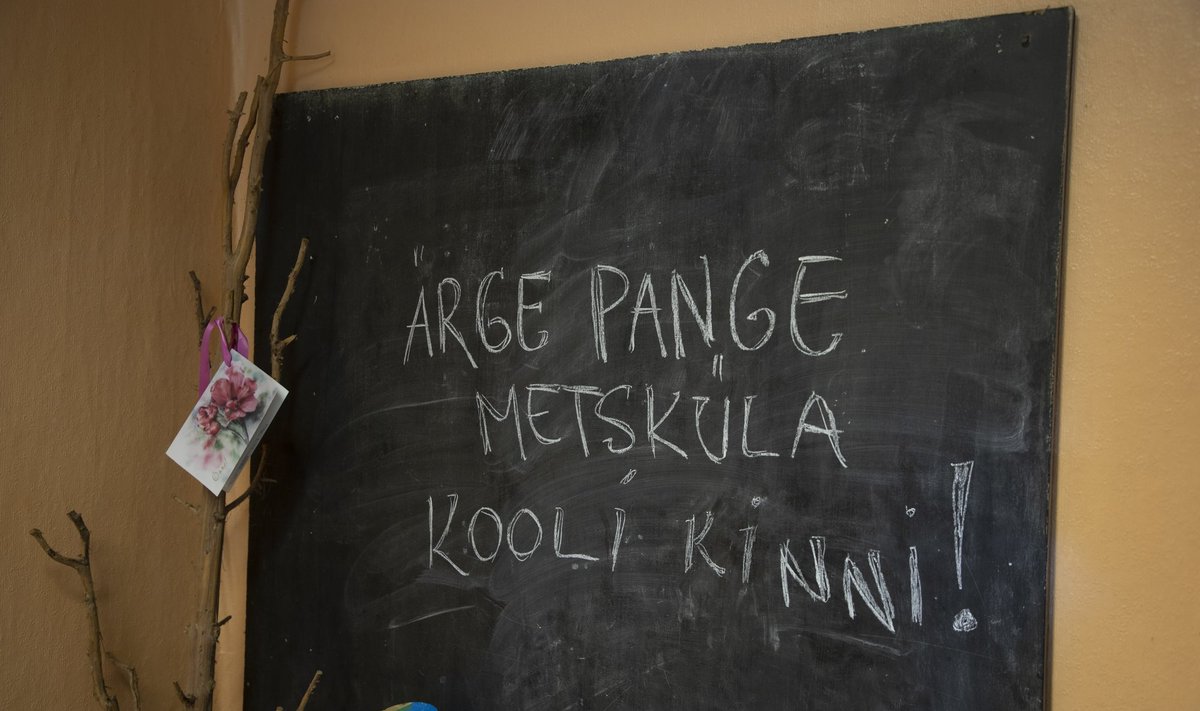 ÄRGE PANGE
METSKÜLA
KOOLi KiNNi!